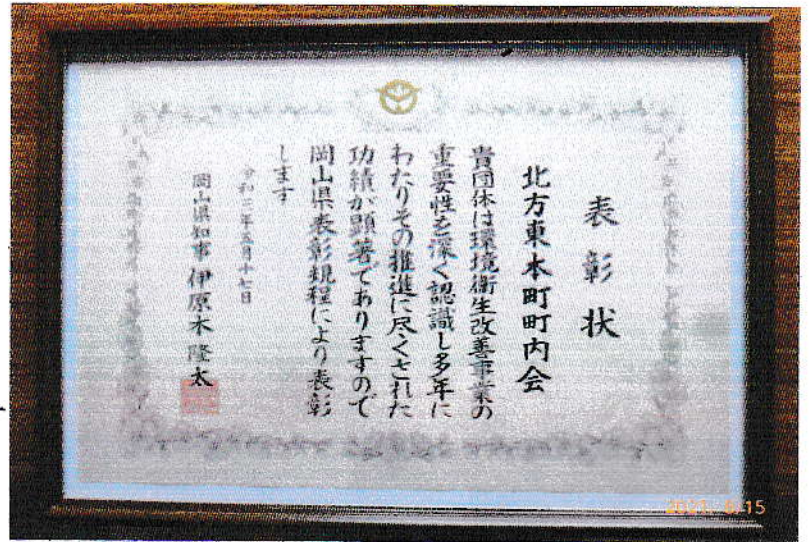 表彰状
北方東本町町内会
貴団体は環境衛生改善事業の
重要性を深く認識し多年に
わたりその推進に尽くされた
功績が顕著でありますので
岡山県表彰規程により表彰
します
令和三年五月十七日
岡山県知事 伊原木隆太